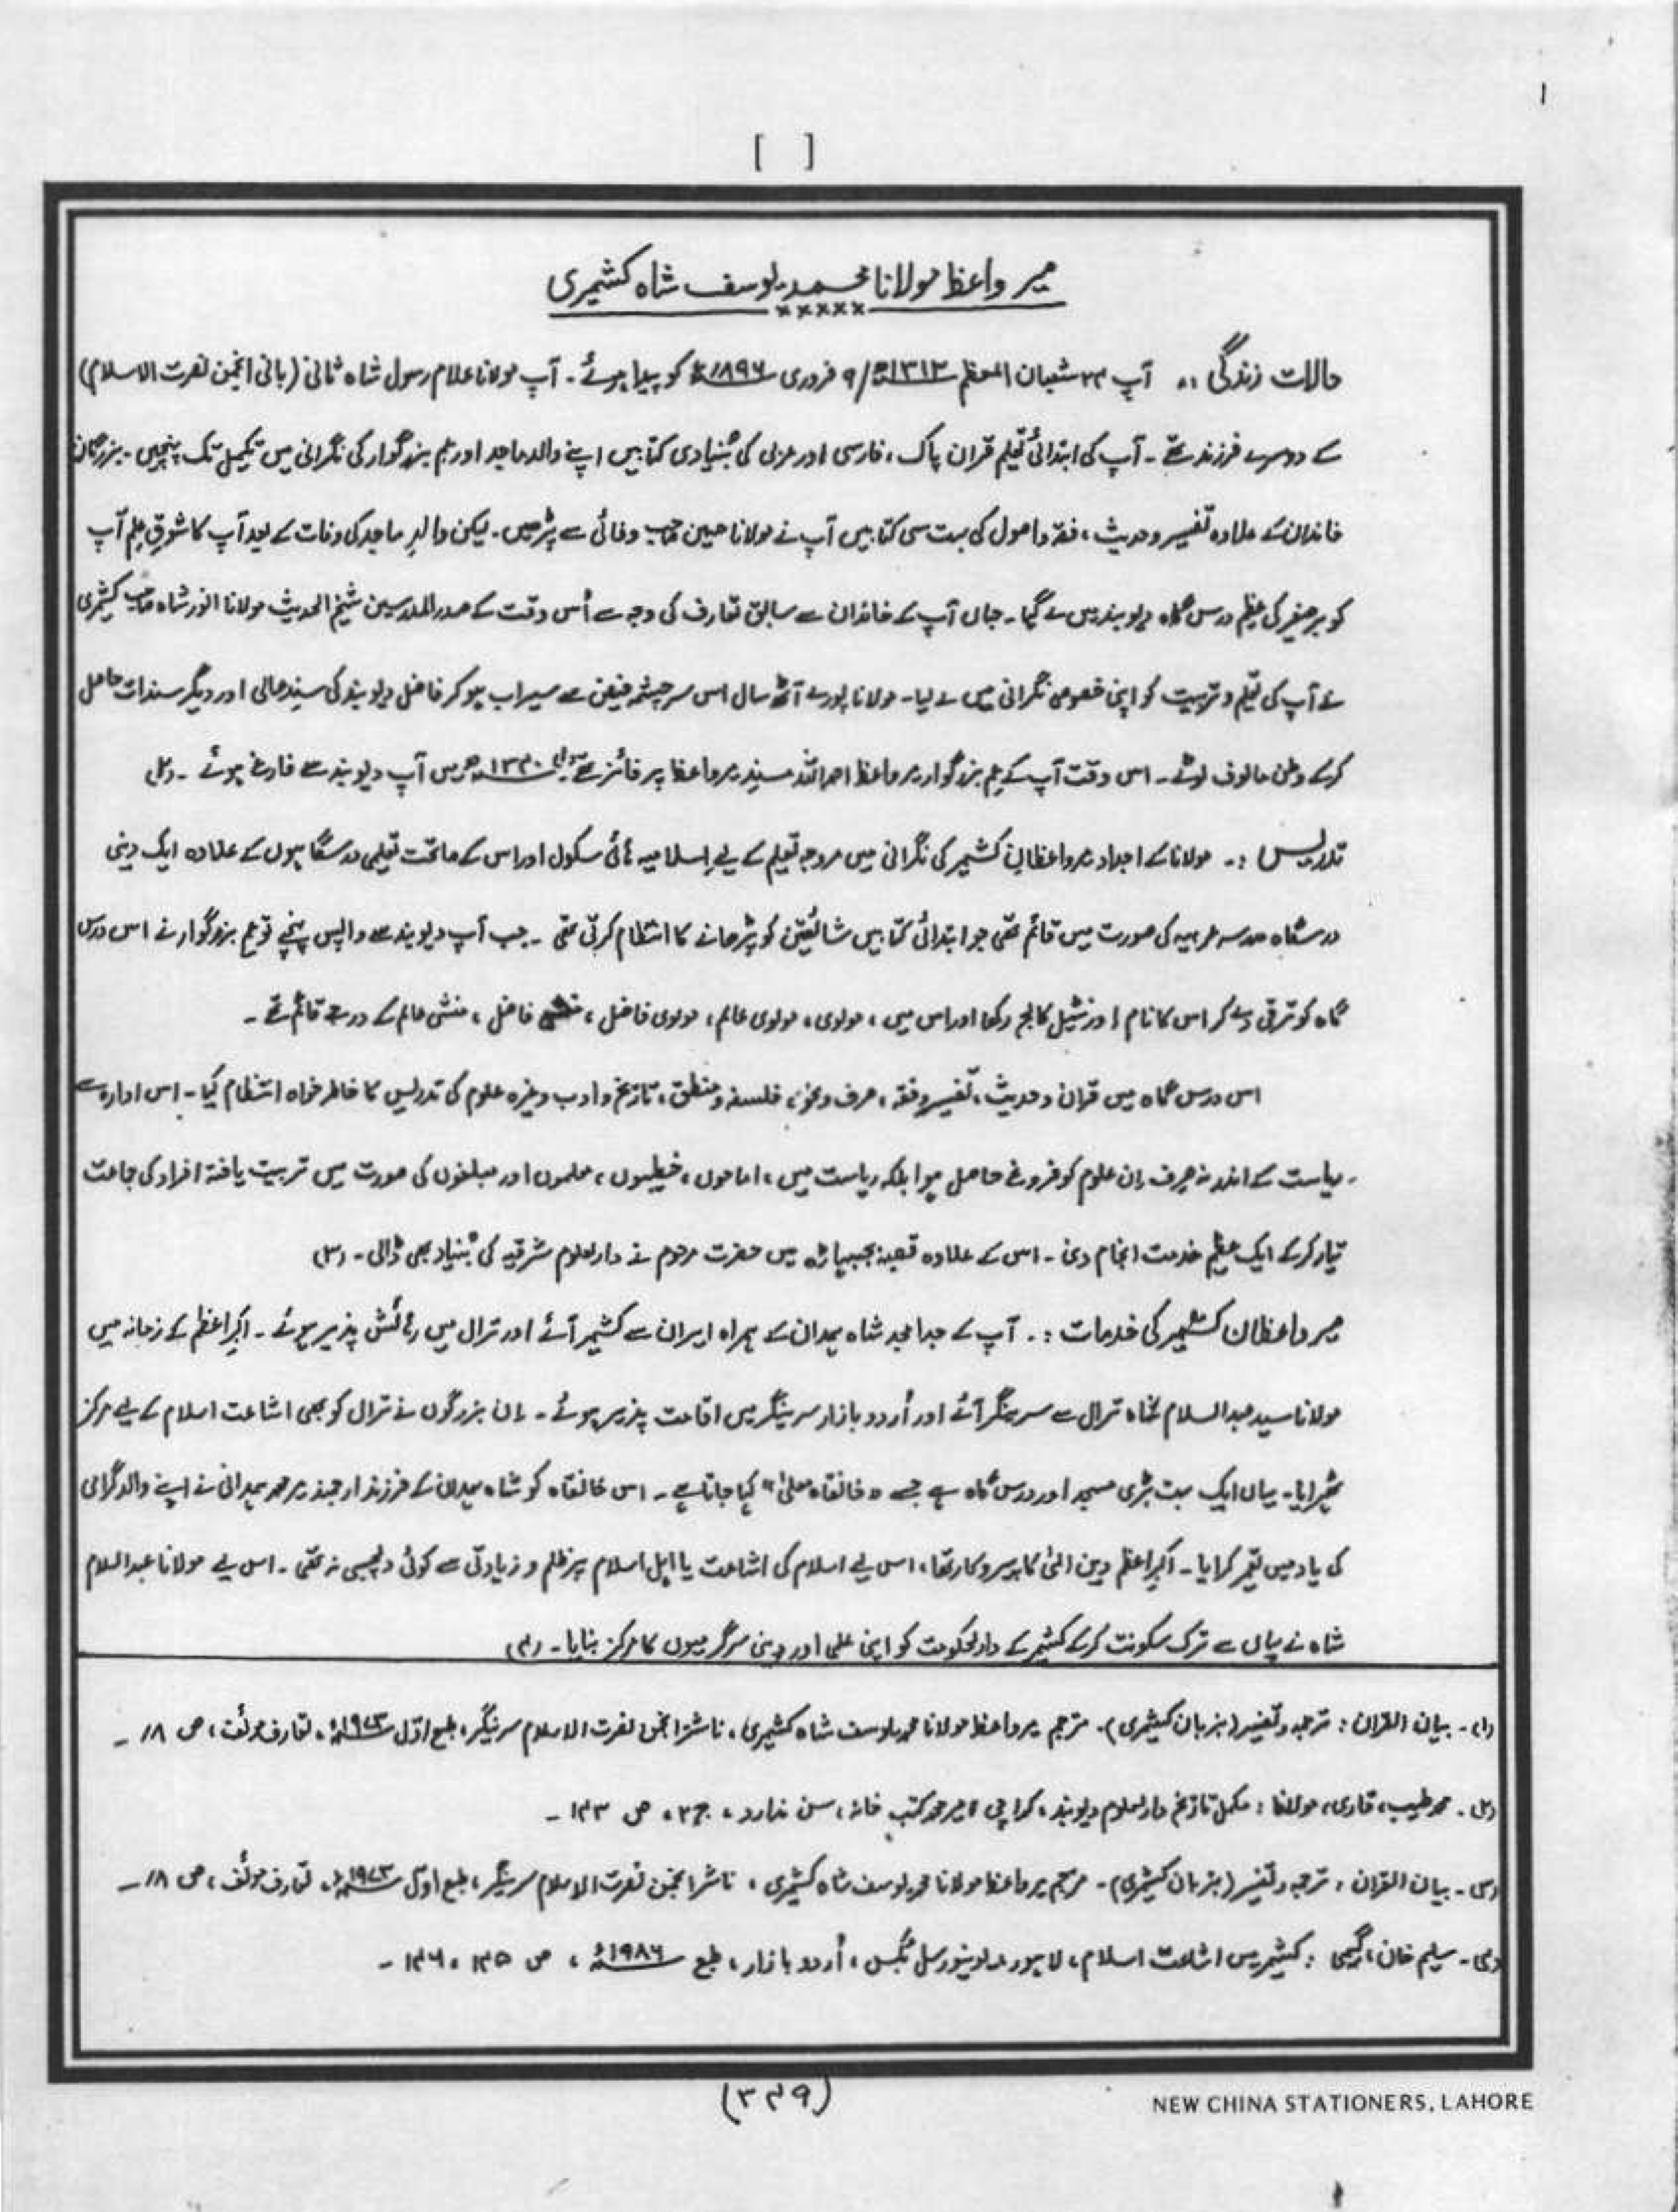 ۱
[ ]
میر واعظ مولانا محمد یوسف شاہ کشمیری
×××××
حالات زندگی :۔ آپ ۲۳ شعبان المعظم ۱۳۱۳ھ/۹ فروری ۱۸۹۶ء کو پیدا ہوئے۔ آپ مولانا غلام رسول شاہ ثانی (بانی انجمن نصرت الاسلام)
کے دوسرے فرزند تھے۔ آپ کی ابتدائی تعلیم قران پاک، فارسی اور عربی کی بُنیادی کتابیں اپنے والد ماجد اور عم بزرگوار کی نگرانی میں تکمیل تک پہنچیں۔ بزرگان
خاندان کے علاوہ تفسیر و حدیث، فقہ و اصول کی بہت سی کتابیں آپ نے مولانا حسین صاحب وفائی سے پڑھیں۔ لیکن والدِ ماجد کی وفات کے بعد آپ کا شوقِ علم آپ
کو برصغیر کی عظیم درس گاہ دیوبند میں لے گیا۔ جہاں آپ کے خاندان سے سابق تعارف کی وجہ سے اُس وقت کے صدر المدرسین شیخ الحدیث مولانا انور شاہ صاحب کشمیری
نے آپ کی تعلیم و تربیت کو اپنی خصوصی نگرانی میں لے لیا۔ مولانا پورے آٹھ سال اس سرچشمہ فیض سے سیراب ہو کر فاضل دیوبند کی سندِ عالی اور دیگر سندات حاصل
کرکے وطن مالوف لوٹے۔ اس وقت آپ کے عم بزرگوار میر واعظ احمد اللہ مسندِ میر واعظ پر فائز تھے(۱) ۱۳۴۰ھ میں آپ دیوبند سے فارغ ہوئے ۔(۲)
تدریس :۔ مولانا کے اجداد میر واعظانِ کشمیر کی نگرانی میں مروجہ تعلیم کے لیے اسلامیہ ہائی سکول اور اس کے ماتحت تعلیمی درسگاہوں کے علاوہ ایک دینی
درسگاہ مدرسہ عربیہ کی صورت میں قائم تھی جو ابتدائی کتابیں شائقین کو پڑھانے کا انتظام کرتی تھی ۔ جب آپ دیوبند سے واپس پہنچے تو عم بزرگوار نے اس درس
گاہ کو ترقی دے کر اس کا نام اورنٹیل کالج رکھا اور اس میں، مولوی، مولوی عالم، مولوی فاضل، منشی فاضل، منشی عالم کے درجے قائم تھے۔
اس درس گاہ میں قران و حدیث، تفسیر و فقہ، صرف و نحو، فلسفہ و منطق، تاریخ و ادب وغیرہ علوم کی تدریس کا خاطر خواہ انتظام کیا۔ اس ادارہ سے
ریاست کے اندر نہ صرف ان علوم کو فروغ حاصل ہوا بلکہ ریاست میں، اماموں، خطیبوں، معلموں اور مبلغوں کی صورت میں تربیت یافتہ افراد کی جماعت
تیار کرکے ایک عظیم خدمت انجام دی۔ اس کے علاوہ قصبہ بجبہاڑہ میں حضرت مرحوم نے دارالعلوم شرقیہ کی بُنیاد بھی ڈالی۔ (۳)
میر واعظان کشمیر کی خدمات :۔ آپ کے جد امجد شاہ ہمدان کے ہمراہ ایران سے کشمیر آئے اور ترال میں رہائش پذیر ہوئے۔ اکبراعظم کے زمانہ میں
مولانا سید عبدالسلام شاہ ترال سے سرینگر آئے اور اُردو بازار سرینگر میں اقامت پذیر ہوئے۔ ان بزرگوں نے ترال کو بھی اشاعت اسلام کے لیے مرکز
ٹھہرایا۔ یہاں ایک بہت بڑی مسجد اور درس گاہ ہے جسے "خانقاہ معلیٰ" کہا جاتا ہے۔ اس خانقاہ کو شاہ ہمدان کے فرزند ارجمند میر محمد ہمدانی نے اپنے والد گرامی
کی یاد میں تعمیر کرایا۔ اکبراعظم دین الٰہی کا پیروکار تھا، اس لیے اسلام کی اشاعت یا اہل اسلام پر ظلم و زیادتی سے کوئی دلچسپی نہ تھی۔ اس لیے مولانا عبدالسلام
شاہ نے یہاں سے ترک سکونت کرکے کشمیر کے دارالحکومت کو اپنی علمی اور دینی سرگرمیوں کا مرکز بنایا۔ (۴)
(۱)۔ بیان القران: ترجمہ و تفسیر (بزبان کشمیری)۔ مترجم میر واعظ مولانا محمد یوسف شاہ کشمیری، ناشر انجمن نصرت الاسلام سرینگر، طبع اوّل ۱۹۷۳ء، تعارف مولف، ص ۱۸۔
(۲)۔ محمد طیب، قاری، مولانا: مکمل تاریخ دارلعلوم دیوبند، کراچی، میر محمد کتب خانہ، سن ندارد، ج ۲، ص ۱۴۳۔
(۳)۔ بیان القران، ترجمہ و تفسیر (بزبان کشمیری)۔ مترجم میر واعظ مولانا محمد یوسف شاہ کشمیری، ناشر انجمن نصرت الاسلام سرینگر، طبع اوّل ۱۹۷۳ء، تعارف مولف، ص ۱۸۔
(۴)۔ سلیم خان، گمی: کشمیر میں اشاعت اسلام، لاہور، یونیورسل بُکس، اُردو بازار، طبع ۱۹۸۶ء، ص ۱۴۵، ۱۴۶۔
(۳۴۹)
NEW CHINA STATIONERS, LAHORE